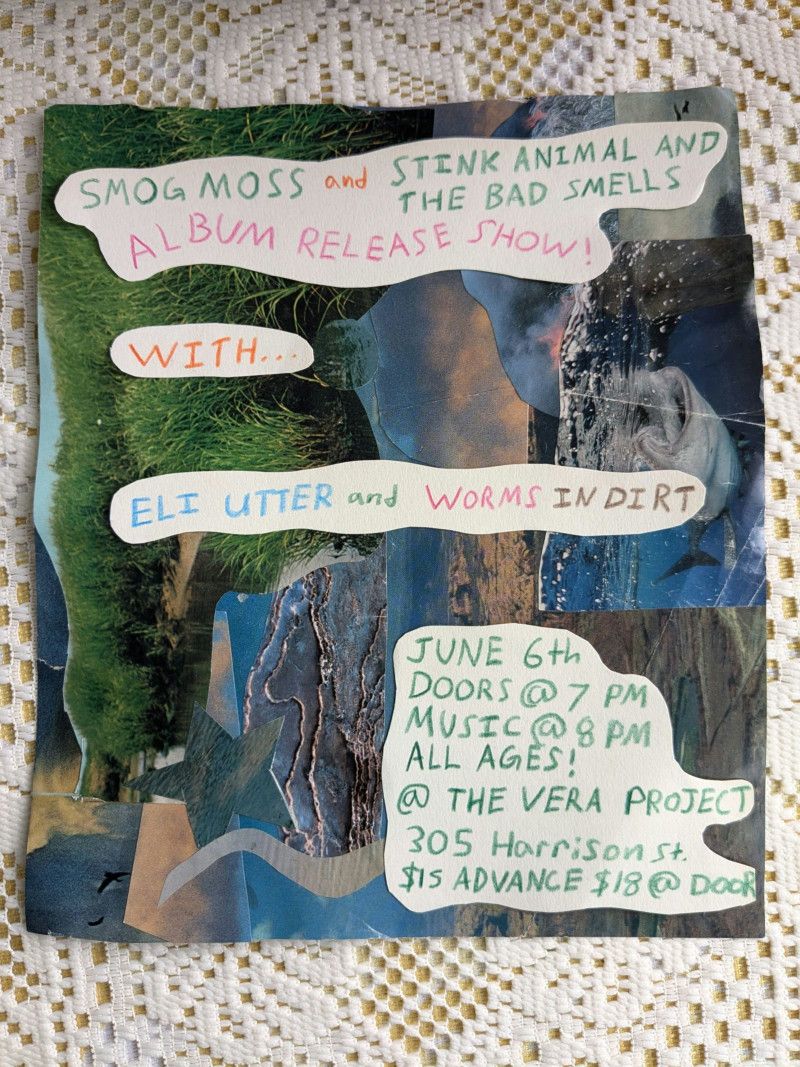 SMOG MOSS and STINK ANIMAL AND
THE BAD SMELLS
ALBUM RELEASE SHOW!
WITH...
ELI UTTER and WORMS IN DIRT
JUNE 6th
DOORS @ 7 PM
MUSIC @ 8 PM
ALL AGES!
@ THE VERA PROJECT
305 Harrison st.
$15 ADVANCE $18 @ DOOR